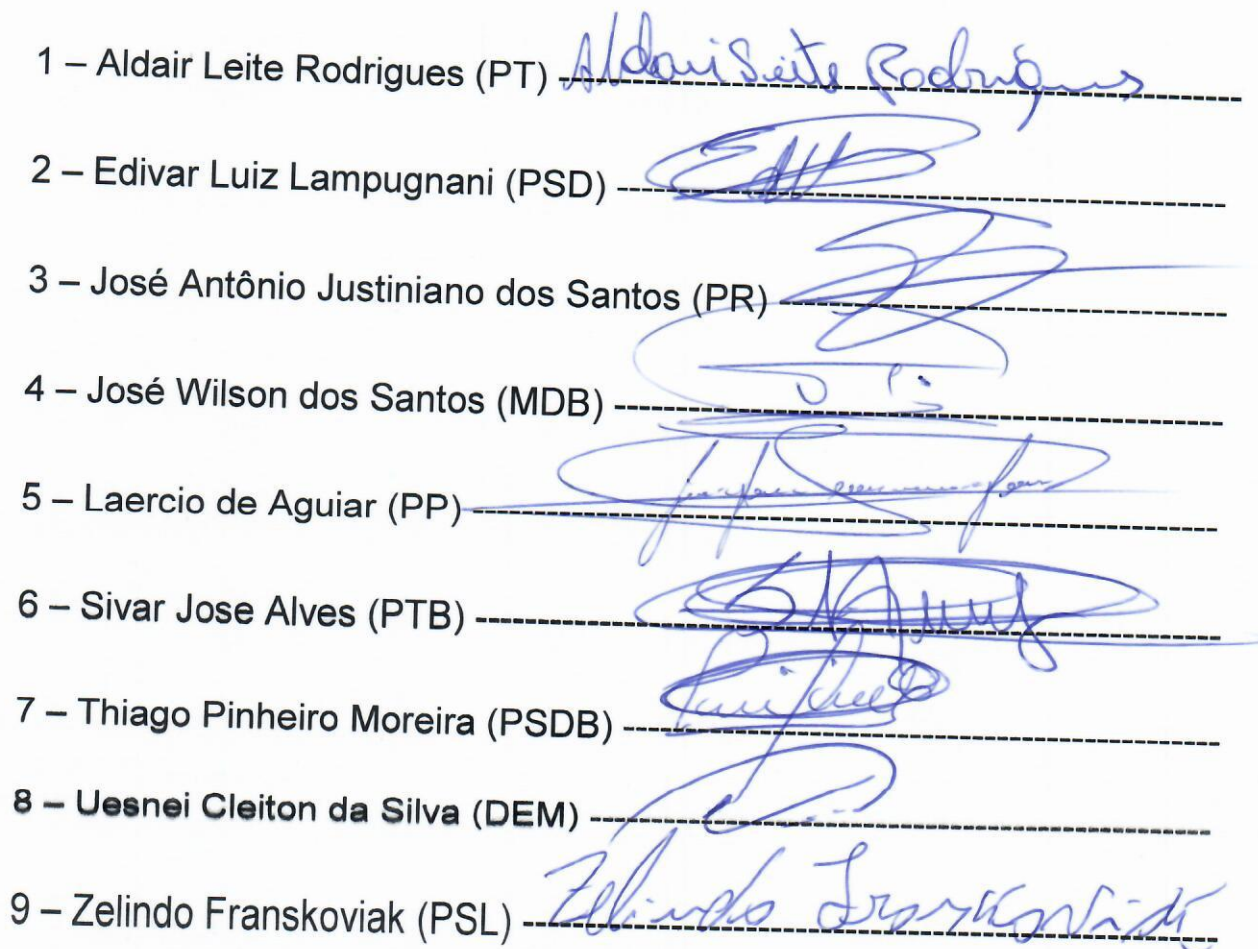 1 – Aldair Leite Rodrigues (PT) Aldair Leite Rodrigues
2 – Edivar Luiz Lampugnani (PSD)
3 – José Antônio Justiniano dos Santos (PR)
4 – José Wilson dos Santos (MDB)
5 – Laercio de Aguiar (PP)
6 – Sivar Jose Alves (PTB)
7 – Thiago Pinheiro Moreira (PSDB)
8 – Uesnei Cleiton da Silva (DEM)
9 – Zelindo Franskoviak (PSL) Zelindo